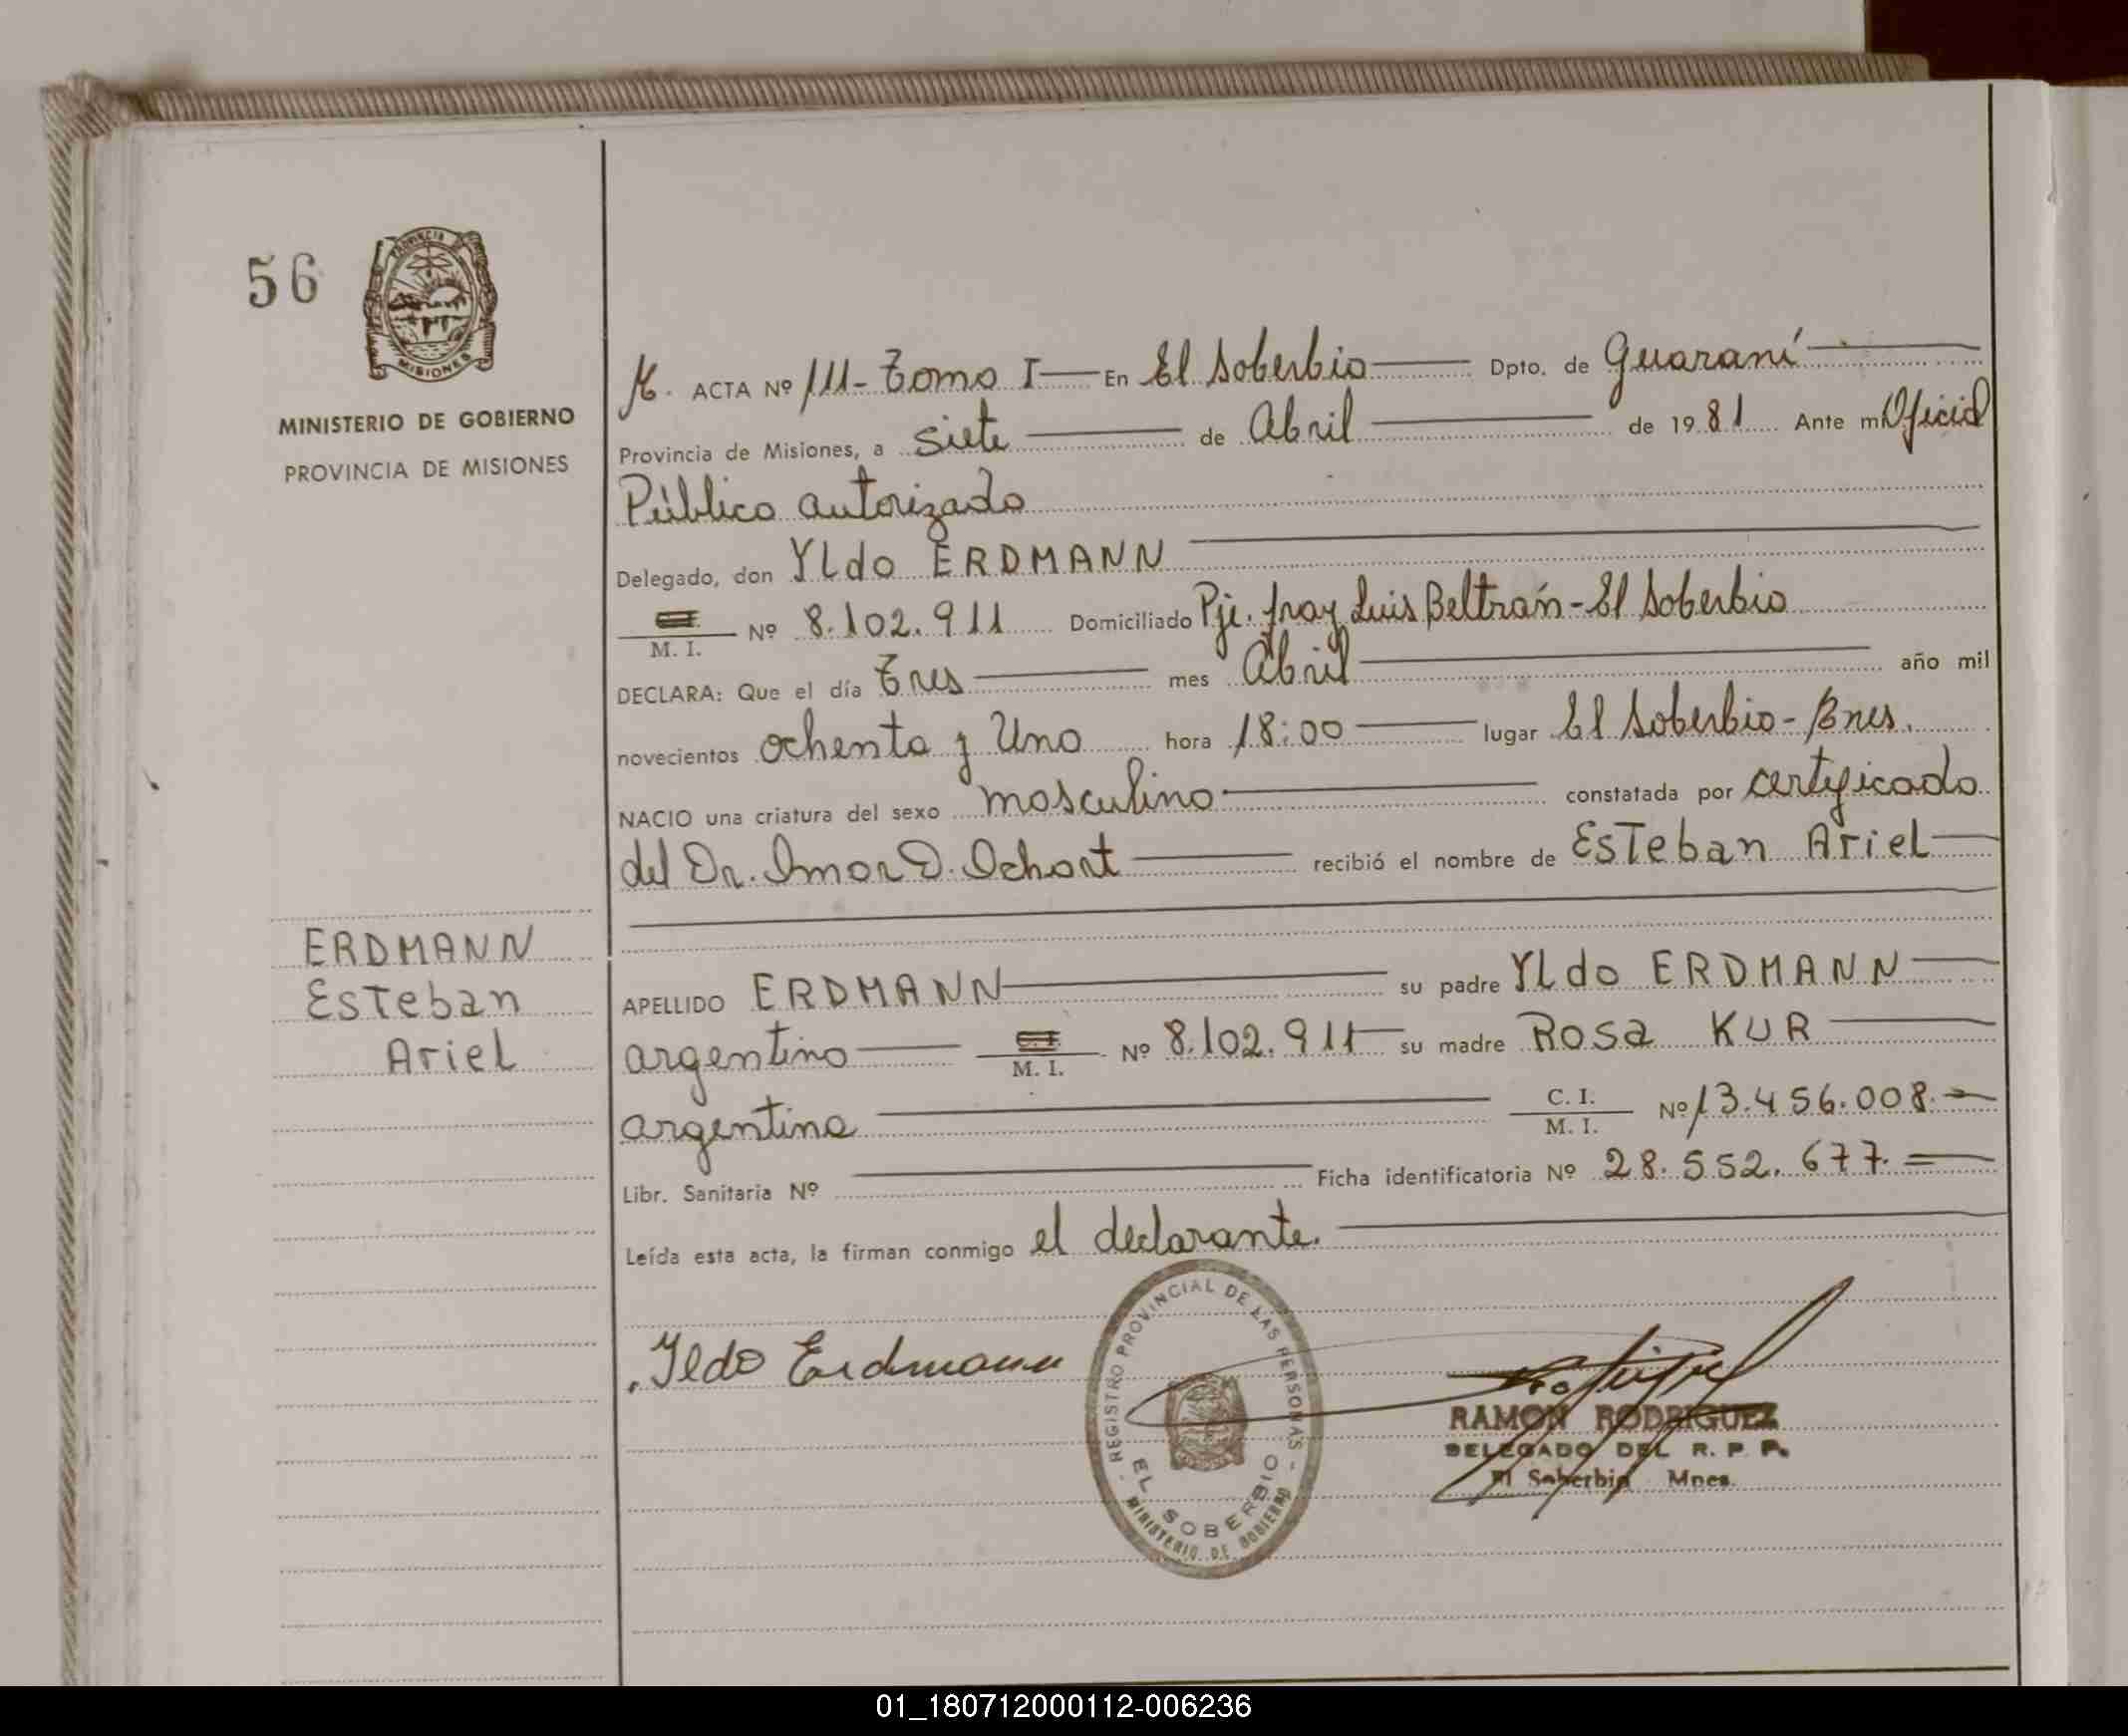 56
PROVINCIA DE
MISIONES
MINISTERIO DE GOBIERNO
PROVINCIA DE MISIONES
ERDMANN
Esteban
Ariel
M. ACTA Nº 111- Tomo I En El Soberbio Dpto. de Guaraní
Provincia de Misiones, a siete de Abril de 1981 Ante mi Oficial
Público autorizado
Delegado, don Yldo ERDMANN
M. I. Nº 8.102.911 Domiciliado Pje. fray Luis Beltrán - El Soberbio
DECLARA: Que el día Tres mes Abril año mil
novecientos ochenta y Uno hora 18:00 lugar El Soberbio -
NACIO una criatura del sexo masculino constatada por certificado
del Dr. Omar D. recibió el nombre de Esteban Ariel
APELLIDO ERDMANN su padre Yldo ERDMANN
argentino C. I. M. I. Nº 8.102.911 su madre Rosa KUR
argentina C. I. M. I. Nº 13.456.008.=
Libr. Sanitaria Nº Ficha identificatoria Nº 28.552.677.=
Leída esta acta, la firman conmigo el declarante.
Ildo Erdmann
- REGISTRO PROVINCIAL DE LAS PERSONAS -
EL SOBERBIO
MINISTERIO DE GOBIERNO
RAMON RODRIGUEZ
DELEGADO DEL R. P. P.
El Soberbio Mnes.
01_180712000112-006236